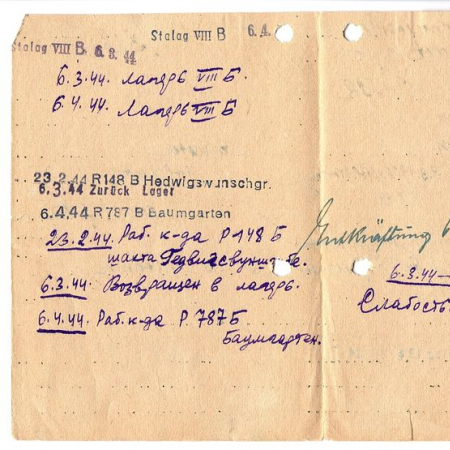 Stalag VIII B 6.4.
Stalag VIII B 6.3.44
6.3.44. лагерь VIII Б
6.4.44. Лагерь VIII Б
23.2.44 R 148 B Hedwigswunschgr.
6.3.44 Zurück Lager
6.4.44 R 787 B Baumgarten
23.2.44. Раб. к-да Р 148 Б
шахта Гедвигсвуншгрубе.
6.3.44. Возвращен в лагерь.
6.4.44. Раб. к-да Р. 787 Б
Баумгартен.
Entkräftung
6.3.44 –
Слабость